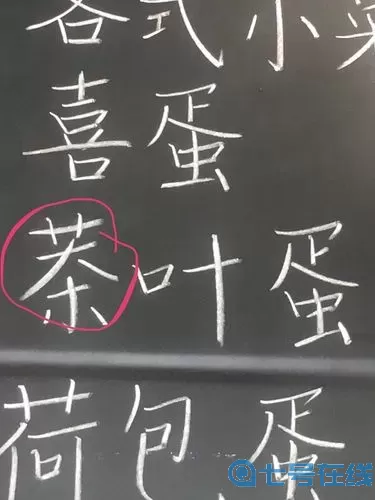 各式小菜
喜蛋
茶叶蛋
荷包蛋
七号在线